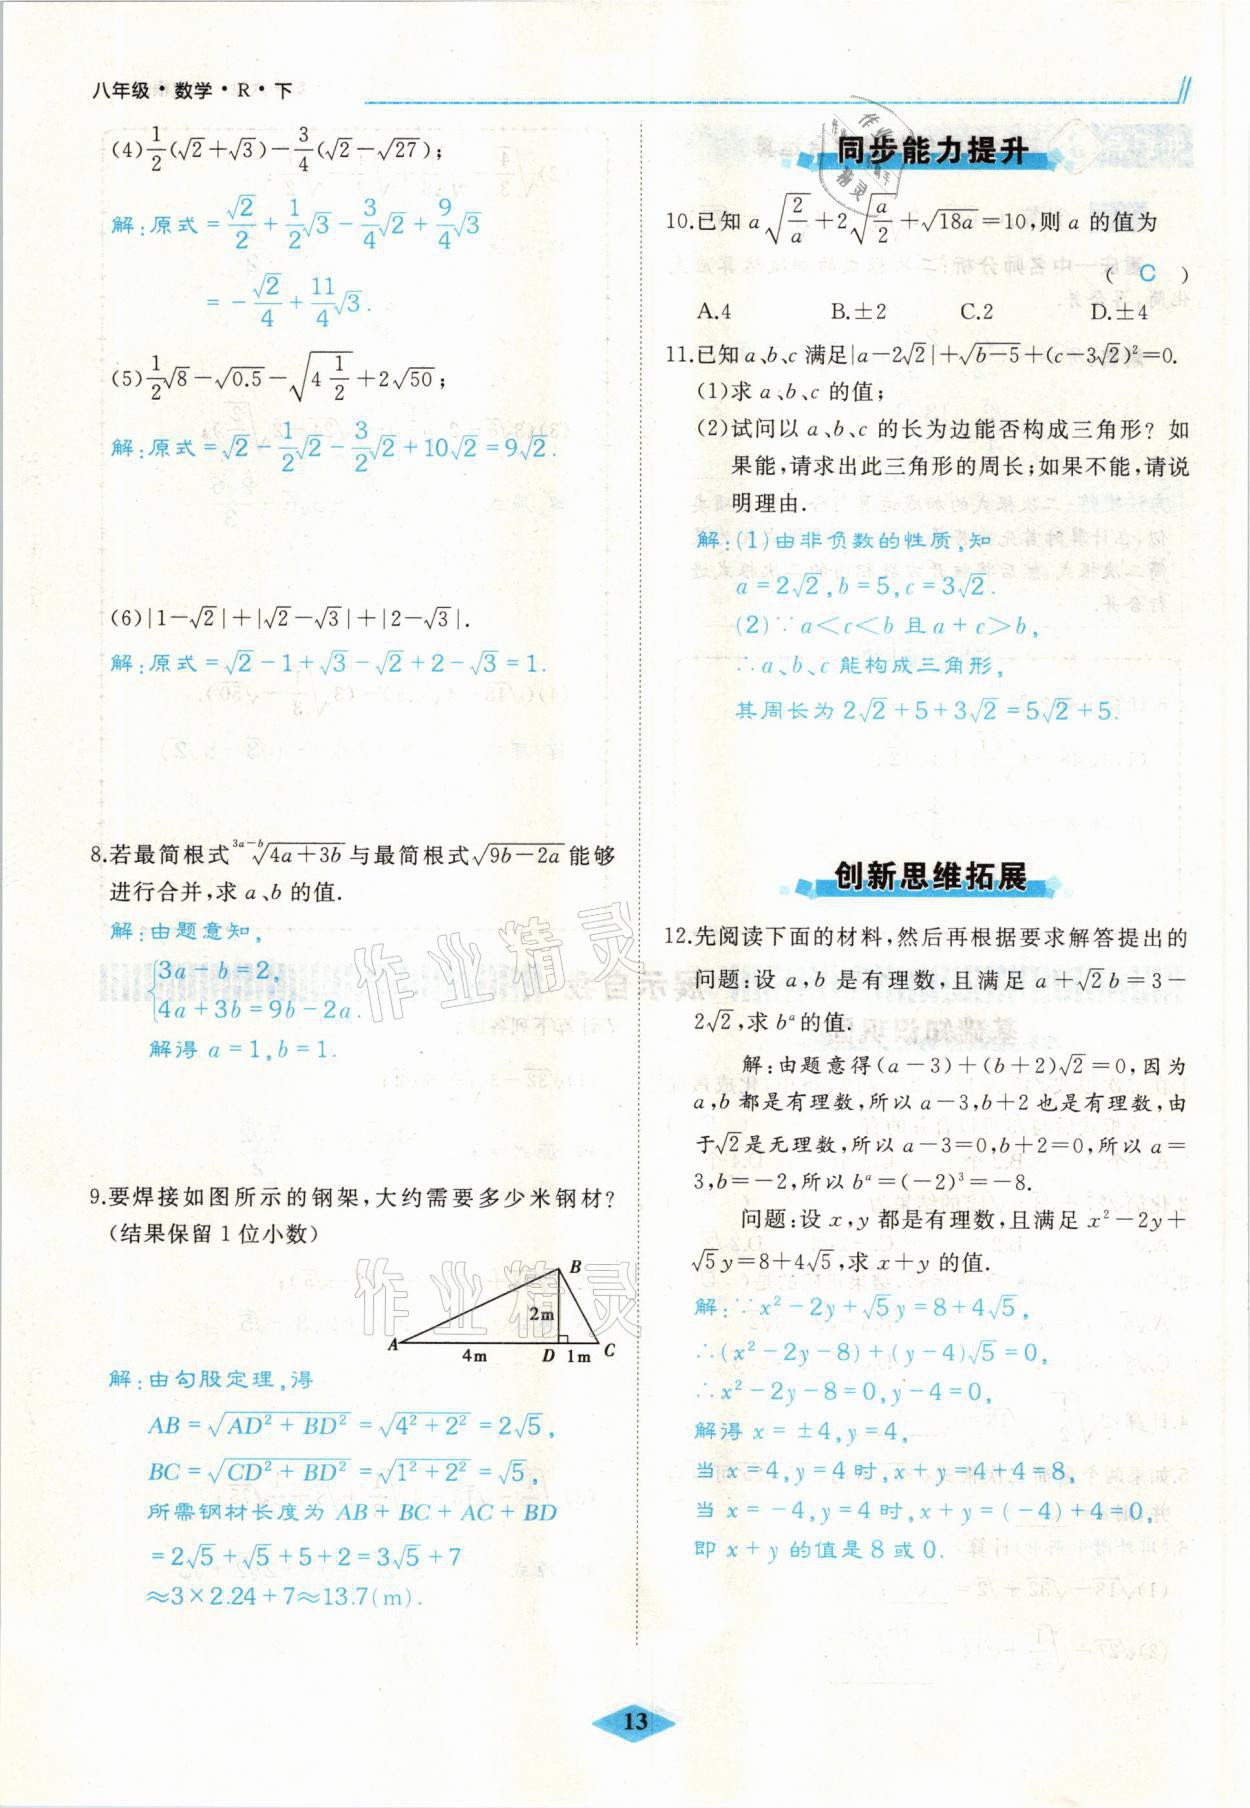 八年级·数学·R·下
(4)$\frac{1}{2}(\sqrt{2}+\sqrt{3})-\frac{3}{4}(\sqrt{2}-\sqrt{27})$;
解:原式=$\frac{\sqrt{2}}{2}+\frac{1}{2}\sqrt{3}-\frac{3}{4}\sqrt{2}+\frac{9}{4}\sqrt{3}$
=$-\frac{\sqrt{2}}{4}+\frac{11}{4}\sqrt{3}$.
(5)$\frac{1}{2}\sqrt{8}-\sqrt{0.5}-\sqrt{4\frac{1}{2}}+2\sqrt{50}$;
解:原式=$\sqrt{2}-\frac{1}{2}\sqrt{2}-\frac{3}{2}\sqrt{2}+10\sqrt{2}=9\sqrt{2}$.
(6)|1-√2|+|√2-√3|+|2-√3|.
解:原式=√2-1+√3-√2+2-√3=1.
8.若最简根式$\sqrt[3a-b]{4a+3b}$与最简根式$\sqrt{9b-2a}$能够
进行合并,求a、b的值.
解:由题意知,
3a-b=2,
4a+3b=9b-2a.
解得a=1,b=1.
9.要焊接如图所示的钢架,大约需要多少米钢材?
(结果保留1位小数)
B
2m
A
4m
D
1m
C
解:由勾股定理,得
AB=$\sqrt{AD^2+BD^2}=\sqrt{4^2+2^2}=2\sqrt{5}$,
BC=$\sqrt{CD^2+BD^2}=\sqrt{1^2+2^2}=\sqrt{5}$,
所需钢材长度为AB+BC+AC+BD
=2√5+√5+5+2=3√5+7
≈3×2.24+7≈13.7(m).
同步能力提升
10.已知$a\sqrt{\frac{2}{a}}+2\sqrt{\frac{a}{2}}+\sqrt{18a}=10$,则a的值为
( C )
A.4 B.±2 C.2 D.±4
11.已知a、b、c满足|a-2√2|+$\sqrt{b-5}$+(c-3√2)²=0.
(1)求a、b、c的值;
(2)试问以a、b、c的长为边能否构成三角形?如
果能,请求出此三角形的周长;如果不能,请说
明理由.
解:(1)由非负数的性质,知
a=2√2,b=5,c=3√2.
(2)∵a<c<b且a+c>b,
∴a、b、c能构成三角形,
其周长为2√2+5+3√2=5√2+5.
创新思维拓展
12.先阅读下面的材料,然后再根据要求解答提出的
问题:设a,b是有理数,且满足a+√2b=3-
2√2,求$b^a$的值.
解:由题意得(a-3)+(b+2)√2=0,因为
a,b都是有理数,所以a-3,b+2也是有理数,由
于√2是无理数,所以a-3=0,b+2=0,所以a=
3,b=-2,所以$b^a$=(-2)³=-8.
问题:设x,y都是有理数,且满足x²-2y+
√5y=8+4√5,求x+y的值.
解:∵x²-2y+√5y=8+4√5,
∴(x²-2y-8)+(y-4)√5=0,
∴x²-2y-8=0,y-4=0,
解得x=±4,y=4,
当x=4,y=4时,x+y=4+4=8,
当x=-4,y=4时,x+y=(-4)+4=0,
即x+y的值是8或0.
13
作业精灵
作业精灵